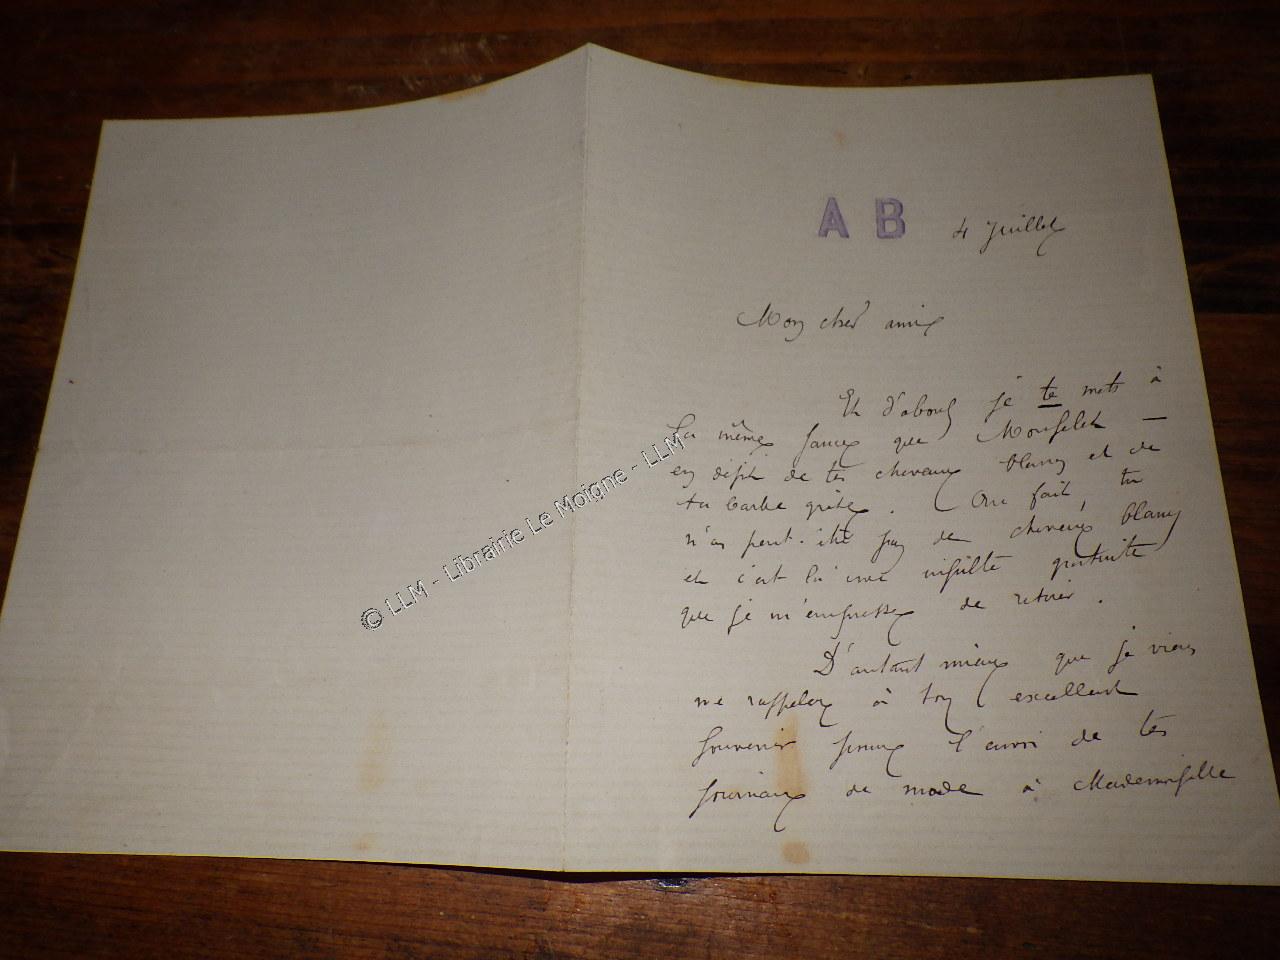 A B 4 Juillet
Mon cher ami
Et d'abord je te mets à
la même sauce que Monselet —
en dépit de tes cheveux blancs et de
ta barbe grise. Au fait, tu
n'as peut-être pas de cheveux blancs
et c'est là une insulte gratuite
que je m'empresse de retirer.
D'autant mieux que je viens
me rappeler à ton excellent
souvenir pour l'envoi de tes
journaux de mode à Mademoiselle
© LLM - Librairie Le Moigne - LLM